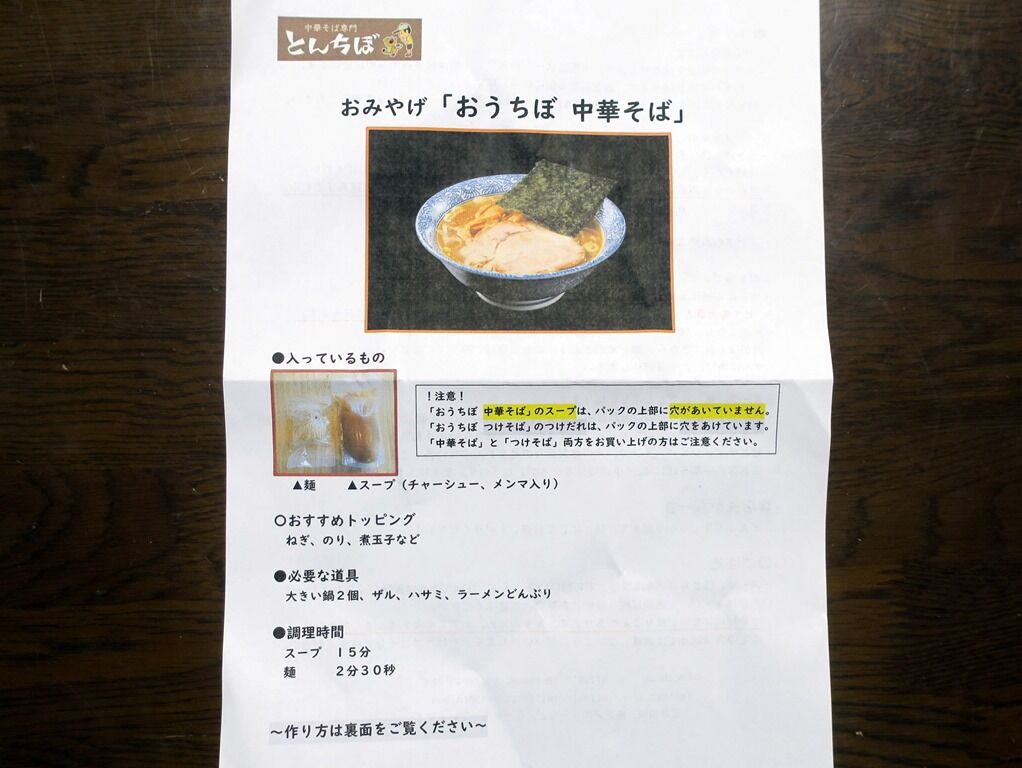 中華そば専門
とんちぼ
おみやげ「おうちぼ 中華そば」
●入っているもの
！注意！
「おうちぼ 中華そば」のスープは、パックの上部に穴があいていません。
「おうちぼ つけそば」のつけだれは、パックの上部に穴をあけています。
「中華そば」と「つけそば」両方をお買い上げの方はご注意ください。
▲麺 ▲スープ（チャーシュー、メンマ入り）
〇おすすめトッピング
ねぎ、のり、煮玉子など
●必要な道具
大きい鍋２個、ザル、ハサミ、ラーメンどんぶり
●調理時間
スープ １５分
麺 ２分３０秒
～作り方は裏面をご覧ください～